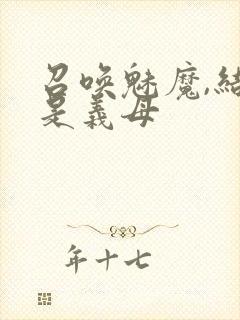 召唤魅魔,结
是义母
年十七